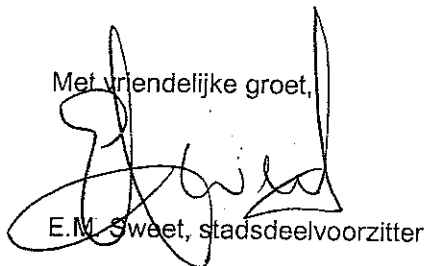 Met vriendelijke groet,
E.M. Sweet, stadsdeelvoorzitter